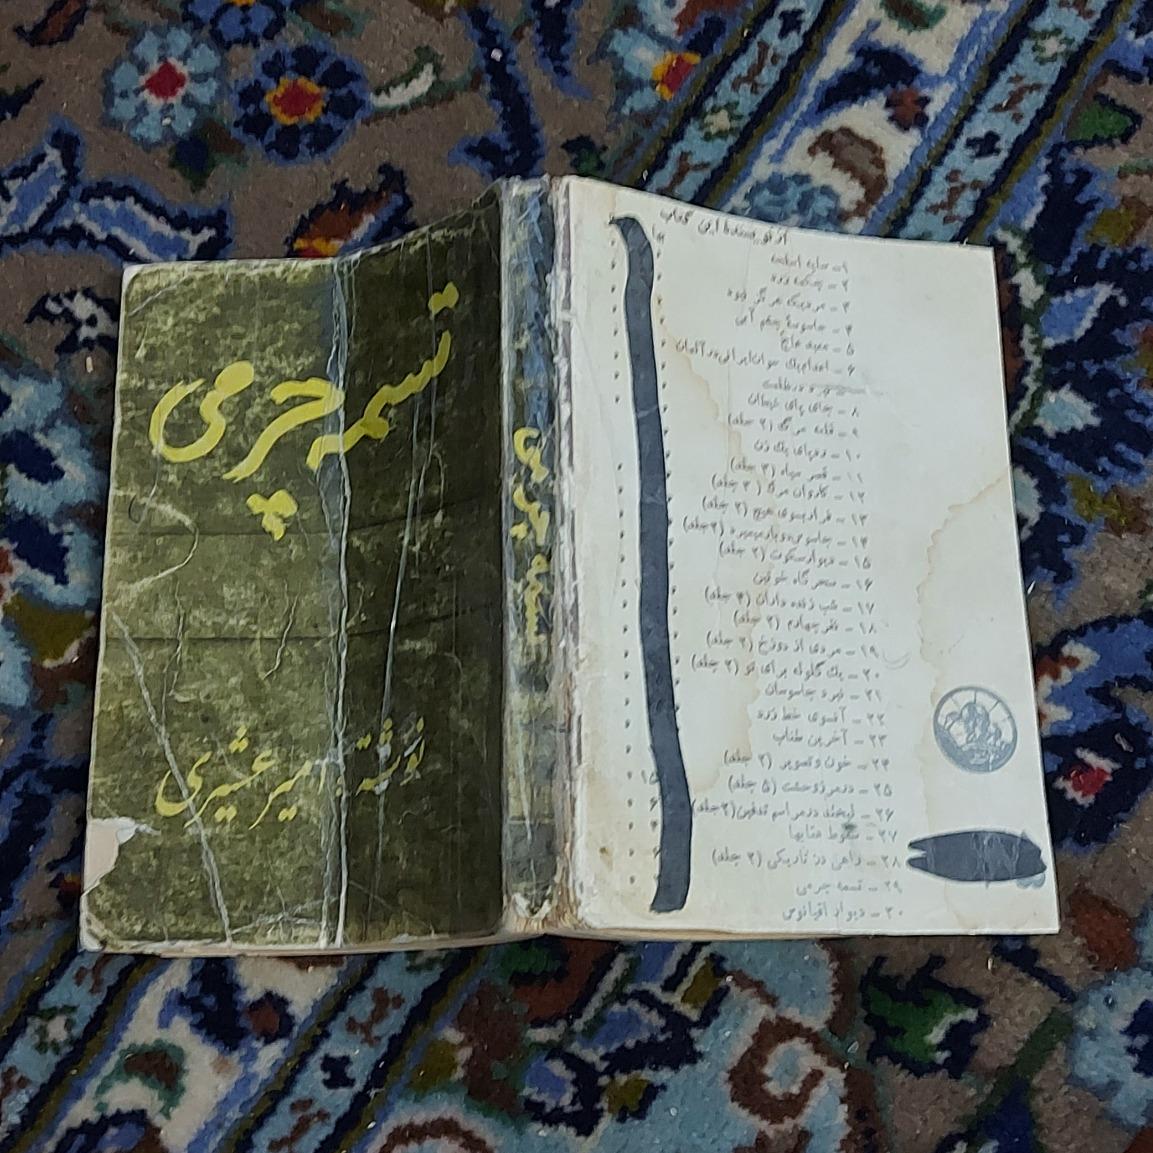 تسمه چرمی
نوشته: امیر عشیری
تسمه چرمی
از نویسنده این کتاب
۱ـ سایه اسلحه
۲ـ چکمه زرد
۳ـ مردیکه هرگز نبود
۴ـ جاسوسهٔ چشم آبی
۵ـ معبد عاج
۶ـ اعدام یک جوان ایرانی در آلمان
۸ـ جای پای شیطان
۹ـ قلعه مرگ (۲ جلد)
۱۰ـ رد پای یک زن
۱۱ـ قصر سیاه (۳ جلد)
۱۲ـ کاروان مرگ (۳ جلد)
۱۳ـ فرار بسوی هیچ (۲ جلد)
۱۴ـ جاسوس دوبار میمیرد (۲ جلد)
۱۵ـ دیوار سکوت (۲ جلد)
۱۶ـ سحرگاه خونین
۱۷ـ شب زنده داران (۴ جلد)
۱۸ـ نفر چهارم (۲ جلد)
۱۹ـ مردی از دوزخ (۲ جلد)
۲۰ـ یک گلوله برای تو (۲ جلد)
۲۱ـ نبرد جاسوسان
۲۲ـ آنسوی خط زرد
۲۳ـ آخرین طناب
۲۴ـ خون و تصویر (۲ جلد)
۲۵ـ در مرز وحشت (۵ جلد)
۲۶ـ لبخند در مراسم تدفین (۲ جلد)
۲۷ـ سقوط عقابها
۲۸ـ راهی در تاریکی (۲ جلد)
۲۹ـ تسمه چرمی
۳۰ـ دیوار اقیانوس